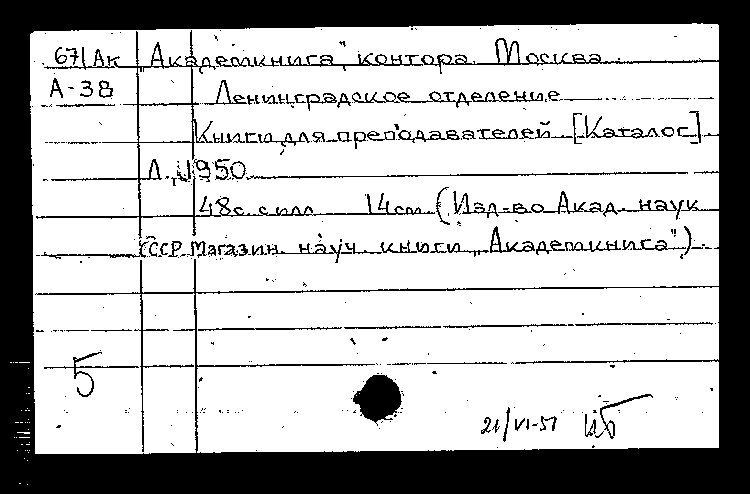 67/Ак „Академкнига", контора. Москва.
А-38 Ленинградское отделение
Книги для преподавателей. [Каталог].
Л., 1950.
48с. с илл. 14см. (Изд-во Акад. наук
СССР. Магазин науч. книги „Академкнига").
5
21/VI-51